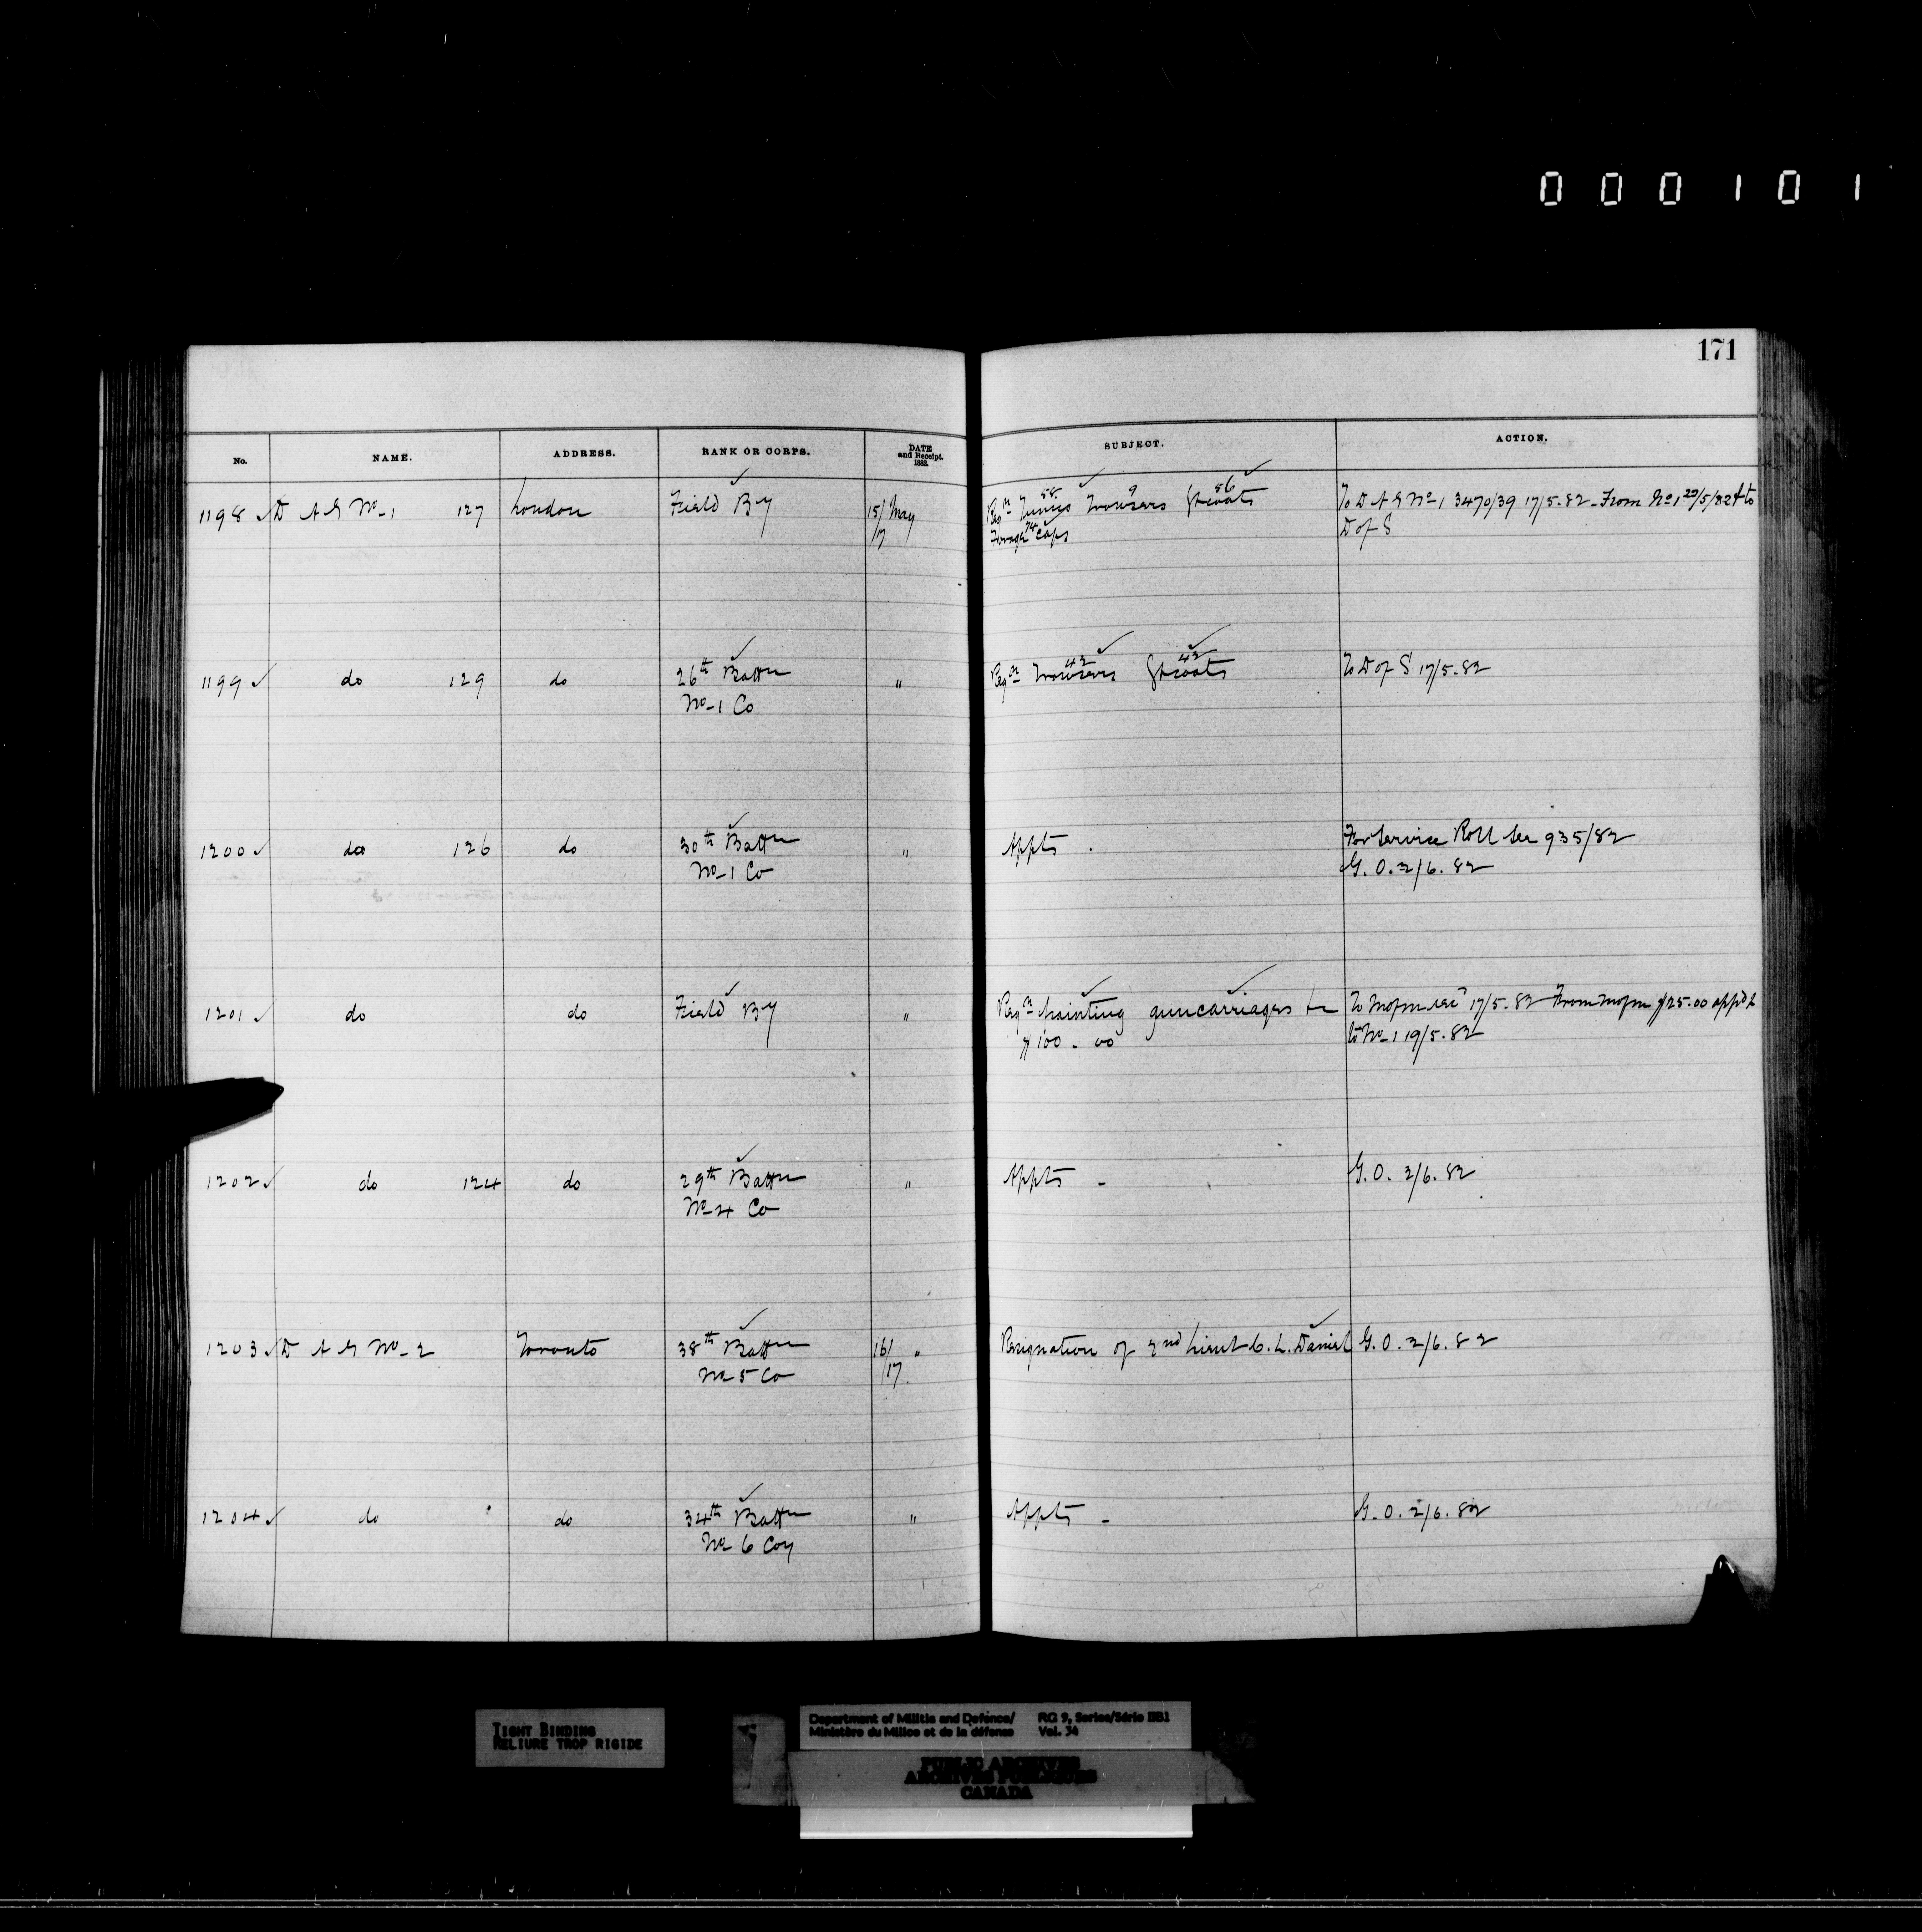 000101
171
No. NAME. ADDRESS. RANK OR CORPS. DATE and Receipt. 1882. SUBJECT. ACTION.
1198 ✓ D A G No-1 127 London Field By 15/17 May Reqn Tunics 58 Trowsers 9 Gtcoats 56 To D A G No-1 3470/39 17/5.82 - From No 1 20/5/82 & to
Forage Caps 74 D of S
1199 ✓ do 129 do 26th Battn " Reqn Trowsers 42 Gtcoats 42 To D of S 17/5.82
No-1 Co
1200 ✓ do 126 do 30th Battn " Appts. For Service Roll See 935/82
No-1 Co G.O. 2/6.82
1201 ✓ do do Field By " Reqn Painting guncarriages &c To 17/5.82 From $25.00 app'd &
$100.00 to No-1 19/5.82
1202 ✓ do 124 do 29th Battn " Appts - G.O. 2/6.82
No-4 Co
1203 ✓ D A G No-2 Toronto 38th Battn 16/17 " Resignation of 2nd Lieut C. L. Daniel G.O. 2/6.82
No 5 Co
1204 ✓ do do 34th Battn " Appts - G.O. 2/6.82
No 6 Coy
TIGHT BINDING
RELIURE TROP RIGIDE
Department of Militia and Defence/ RG 9, Series/Série IIB1
Ministère du Milice et de la défense Vol. 34
PUBLIC ARCHIVES
ARCHIVES PUBLIQUES
CANADA